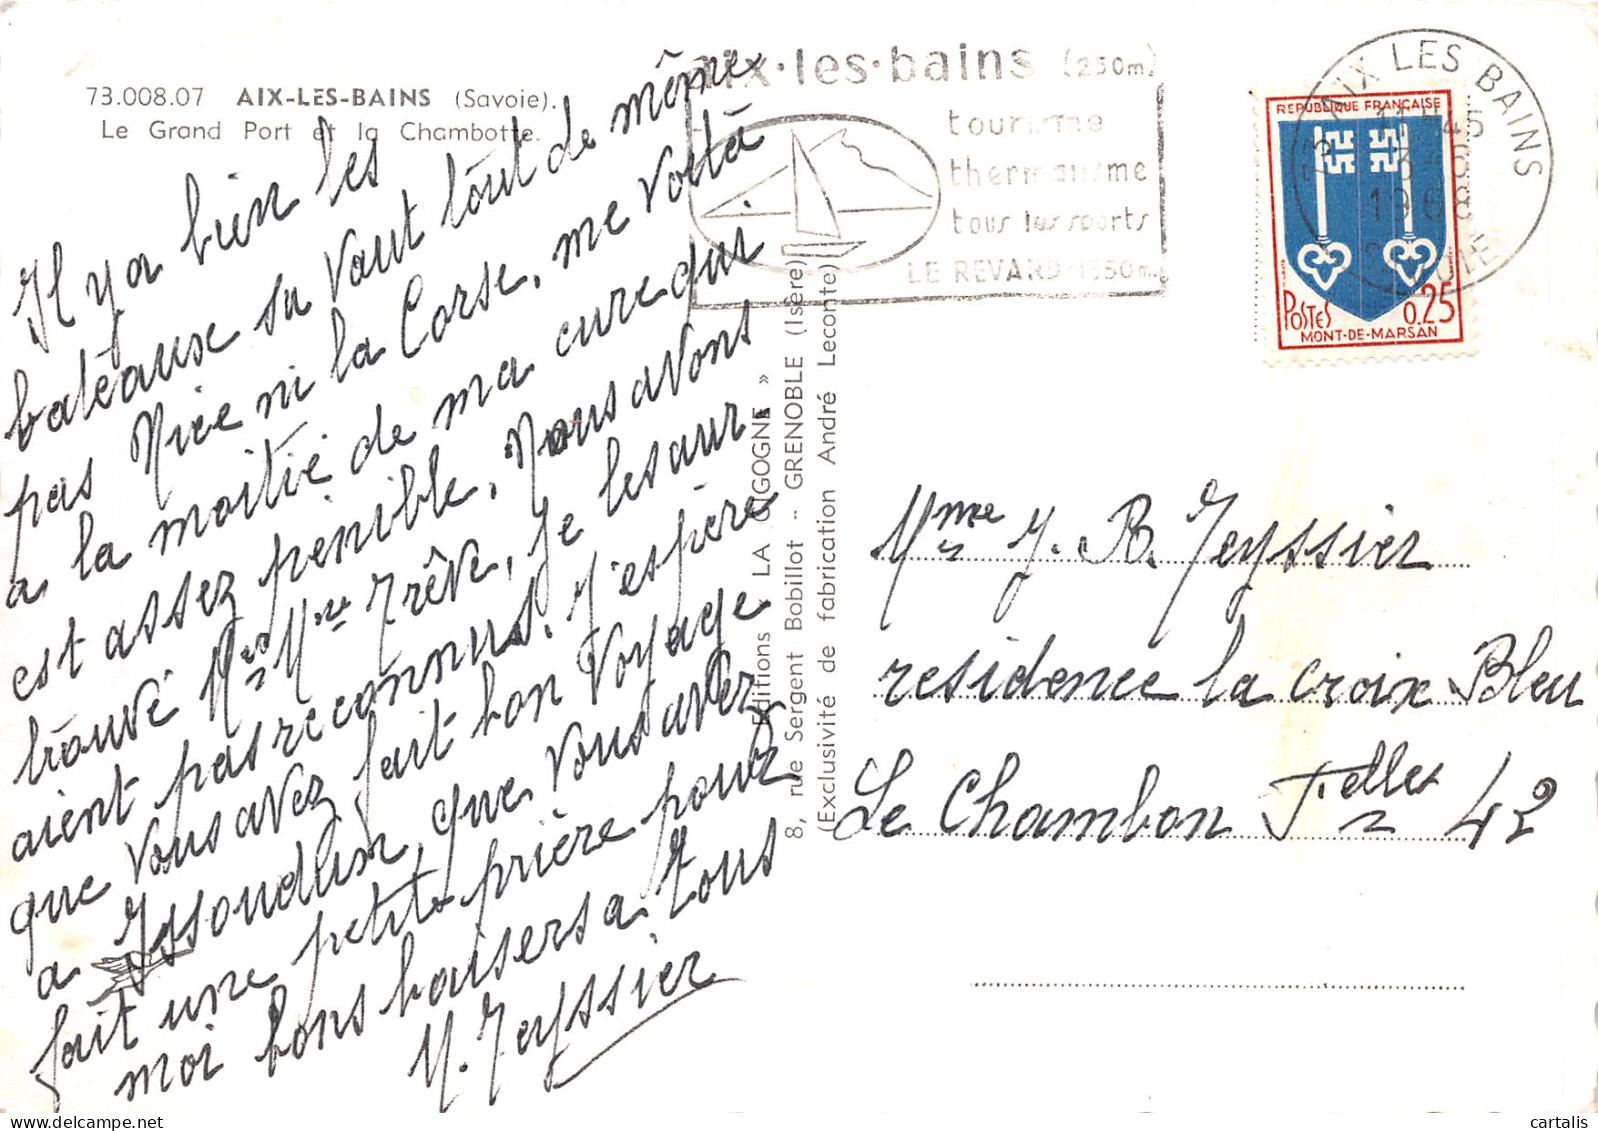 73.008.07 AIX-LES-BAINS (Savoie).
Le Grand Port et la Chambotte.
Il y a bien les
bateaux sa vaut tout de même
pas Nice ni la Corse, me voilà
a la moitié de ma cure qui
est assez penible. Nous avons
trouvé Mr Mme Trêve, je les aur
aient pas reconnus. J'espère
que vous avez fait bon voyage
a Issoudun, que vous avez
fait une petite prière pour
moi bons baisers a tous
M. Teyssier
Editions « LA CIGOGNE »
8, rue Sergent Bobillot - GRENOBLE (Isère)
(Exclusivité de fabrication André Leconte)
aix·les·bains (250m)
tourisme
thermalisme
tous les sports
LE REVARD 1550m.
73 AIX LES BAINS
1968
REPUBLIQUE FRANÇAISE
POSTES 0.25
MONT-DE-MARSAN
Mme J. B. Teyssier
residence la croix Bleu
Le Chambon Felles 42
cartalis